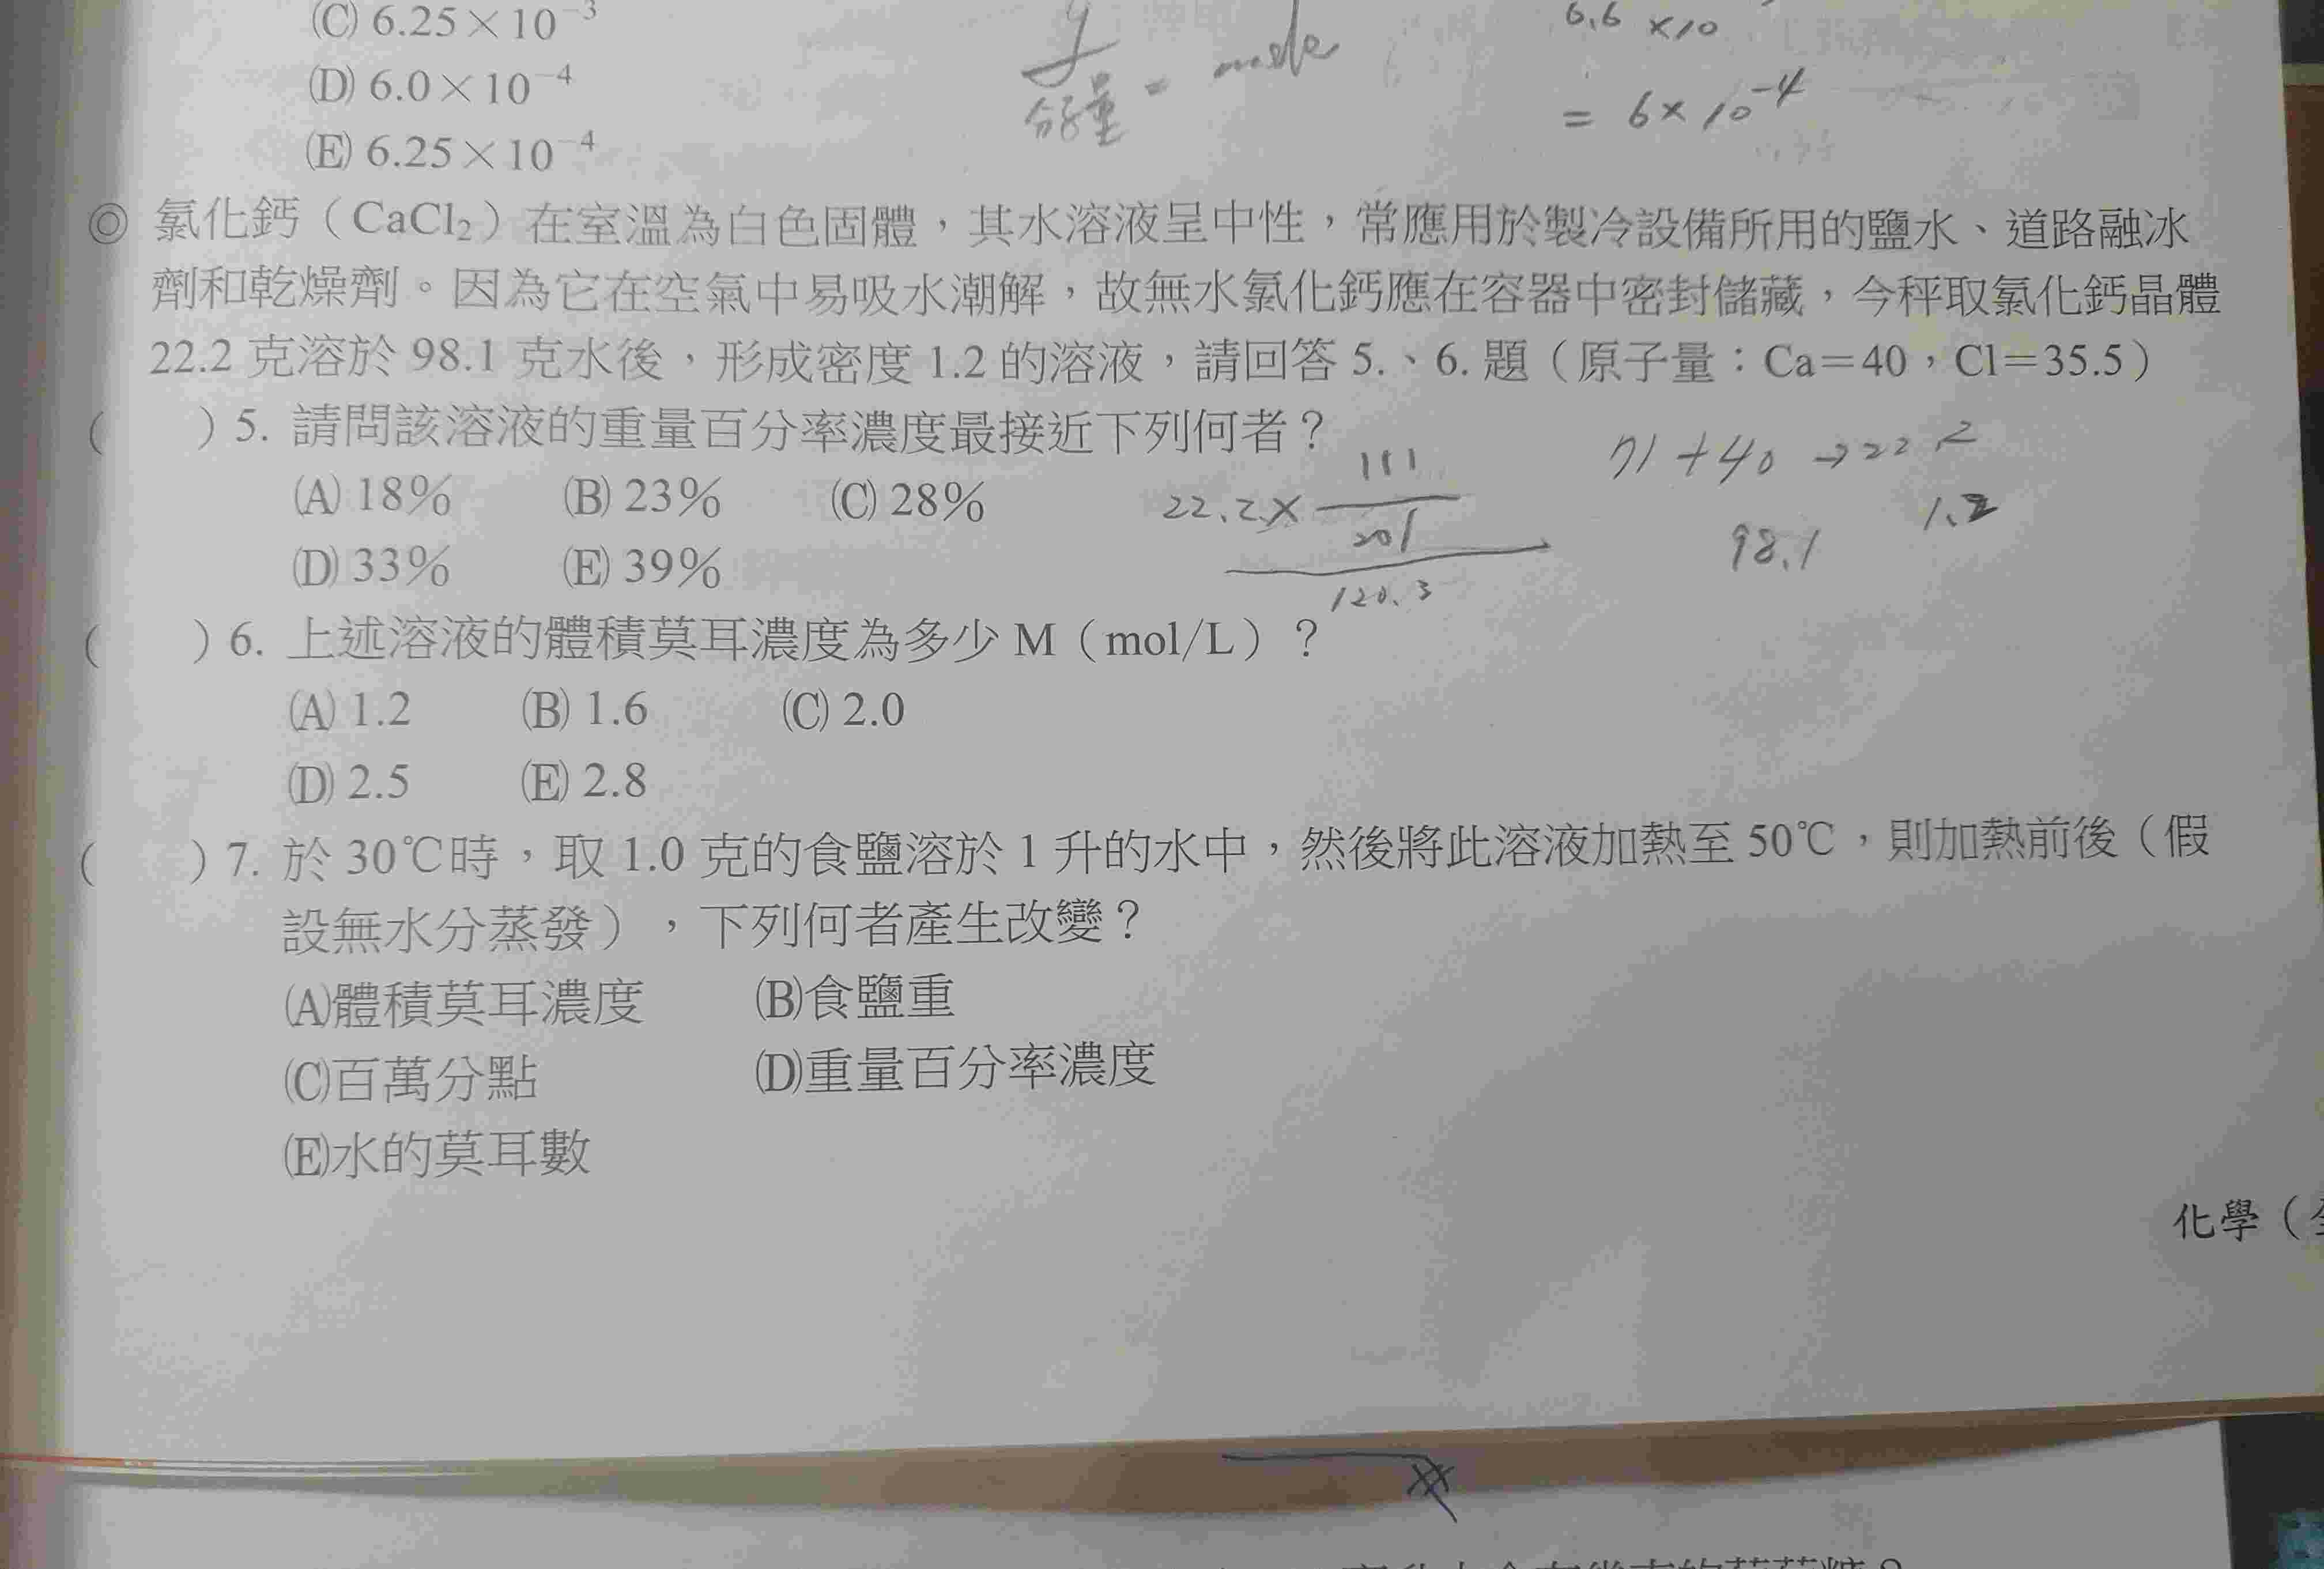 (C) 6.25×10⁻³
(D) 6.0×10⁻⁴
(E) 6.25×10⁻⁴
分子量 = mole
6.6 ×10
= 6×10⁻⁴
◎ 氯化鈣（CaCl₂）在室溫為白色固體，其水溶液呈中性，常應用於製冷設備所用的鹽水、道路融冰
劑和乾燥劑。因為它在空氣中易吸水潮解，故無水氯化鈣應在容器中密封儲藏，今秤取氯化鈣晶體
22.2 克溶於 98.1 克水後，形成密度 1.2 的溶液，請回答 5.、6. 題（原子量：Ca＝40，Cl＝35.5）
( ) 5. 請問該溶液的重量百分率濃度最接近下列何者？
(A) 18% (B) 23% (C) 28%
(D) 33% (E) 39%
111
22.2×
201
120.3
71+40→22.2
98.1
1.2
( ) 6. 上述溶液的體積莫耳濃度為多少 M（mol/L）？
(A) 1.2 (B) 1.6 (C) 2.0
(D) 2.5 (E) 2.8
( ) 7. 於 30℃時，取 1.0 克的食鹽溶於 1 升的水中，然後將此溶液加熱至 50℃，則加熱前後（假
設無水分蒸發），下列何者產生改變？
(A)體積莫耳濃度 (B)食鹽重
(C)百萬分點 (D)重量百分率濃度
(E)水的莫耳數
化學（